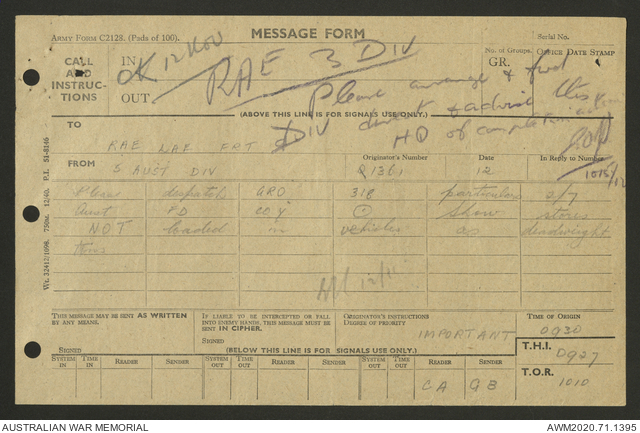 ARMY FORM C2128. (Pads of 100).
MESSAGE FORM
Serial No.
CALL AND INSTRUCTIONS
IN
OUT
OK 12 Nov
RAE 3 DIV
No. of Groups.
GR.
OFFICE DATE STAMP
Please arrange & fwd this
direct & advise
DIV HQ of completion action
(ABOVE THIS LINE IS FOR SIGNALS USE ONLY.)
TO
RAE
FROM
5 AUST DIV
Originator's Number
Date
12
In Reply to Number
1015/12
Please despatch GRO 318 particulars 2/7
Aust PD coy show stores
NOT loaded in vehicles as deadweight
tons
12/11
Wt. 32412/1098. 750M. 12/40. P.I. 51-8146
THIS MESSAGE MAY BE SENT AS WRITTEN
BY ANY MEANS.
SIGNED
IF LIABLE TO BE INTERCEPTED OR FALL
INTO ENEMY HANDS, THIS MESSAGE MUST BE
SENT IN CIPHER.
SIGNED
ORIGINATOR'S INSTRUCTIONS
DEGREE OF PRIORITY
IMPORTANT
TIME OF ORIGIN
0930
(BELOW THIS LINE IS FOR SIGNALS USE ONLY.)
T.H.I. 0927
SYSTEM IN TIME IN READER SENDER SYSTEM OUT TIME OUT READER SENDER SYSTEM OUT TIME OUT READER SENDER
T.O.R. 1010
CA GB
AUSTRALIAN WAR MEMORIAL
AWM2020.71.1395